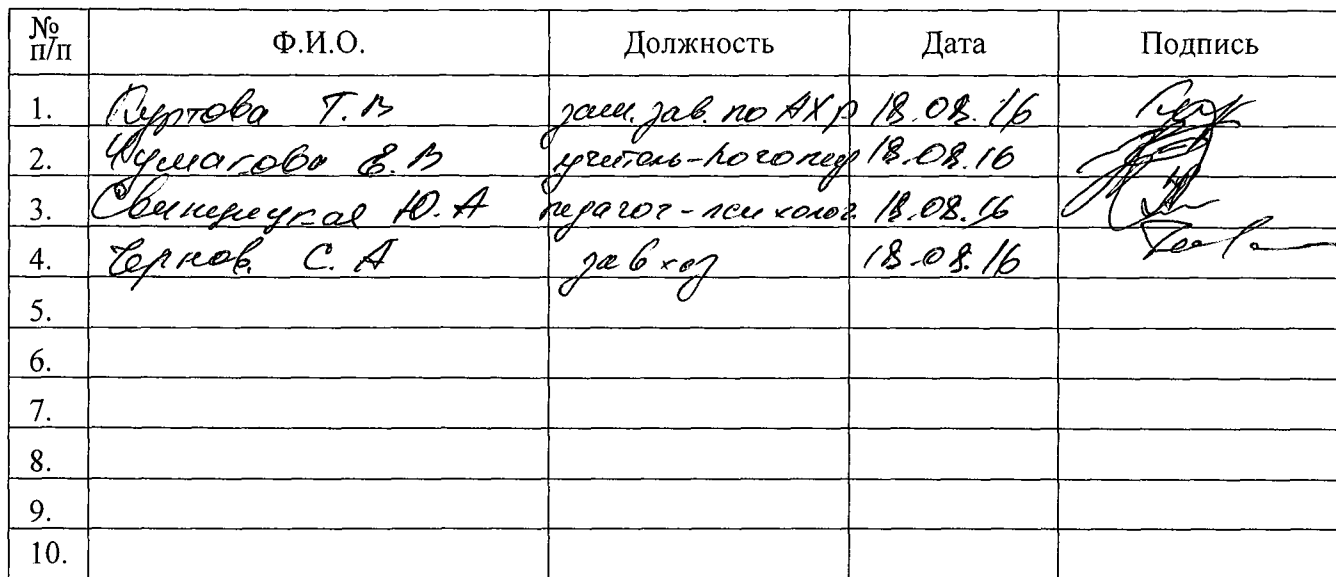 № п/п Ф.И.О. Должность Дата Подпись
1. Куртова Т.В зам. зав. по АХР 18.08.16
2. Е.В учитель-логопед 18.08.16
3. Ю.А педагог-психолог. 18.08.16
4. Чернов С.А завхоз 18.08.16
5.
6.
7.
8.
9.
10.